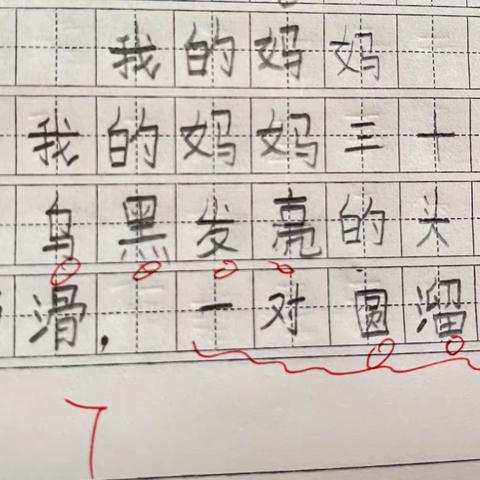 我的妈妈
我的妈妈三十
乌黑发亮的头
滑，一对圆溜